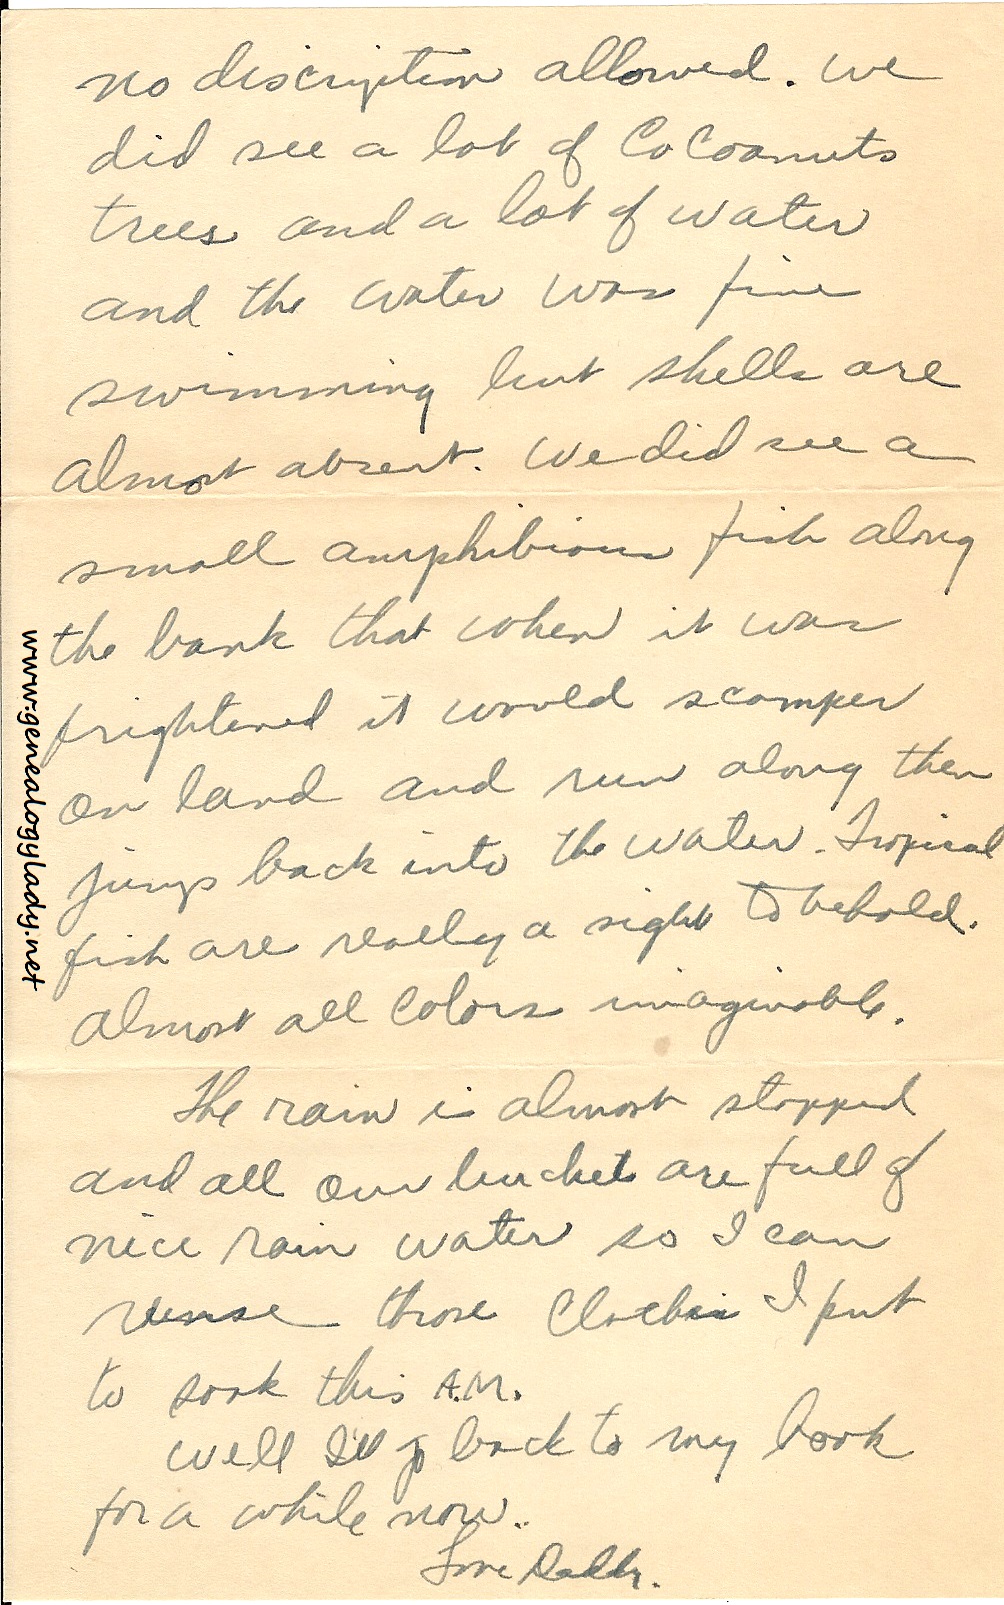 no discription allowed. We
did see a lot of CoCoanuts
trees and a lot of water
and the water was fine
swimming but shells are
almost absent. We did see a
small amphibious fish along
the bank that when it was
frightened it would scamper
on land and run along then
jump back into the water. Tropical
fish are really a sight to behold.
almost all colors imaginable.
The rain is almost stopped
and all our buckets are full of
nice rain water so I can
rense those Clothes I put
to soak this A.M.
Well I'll go back to my book
for a while now.
Love Daddy.
www.genealogylady.net